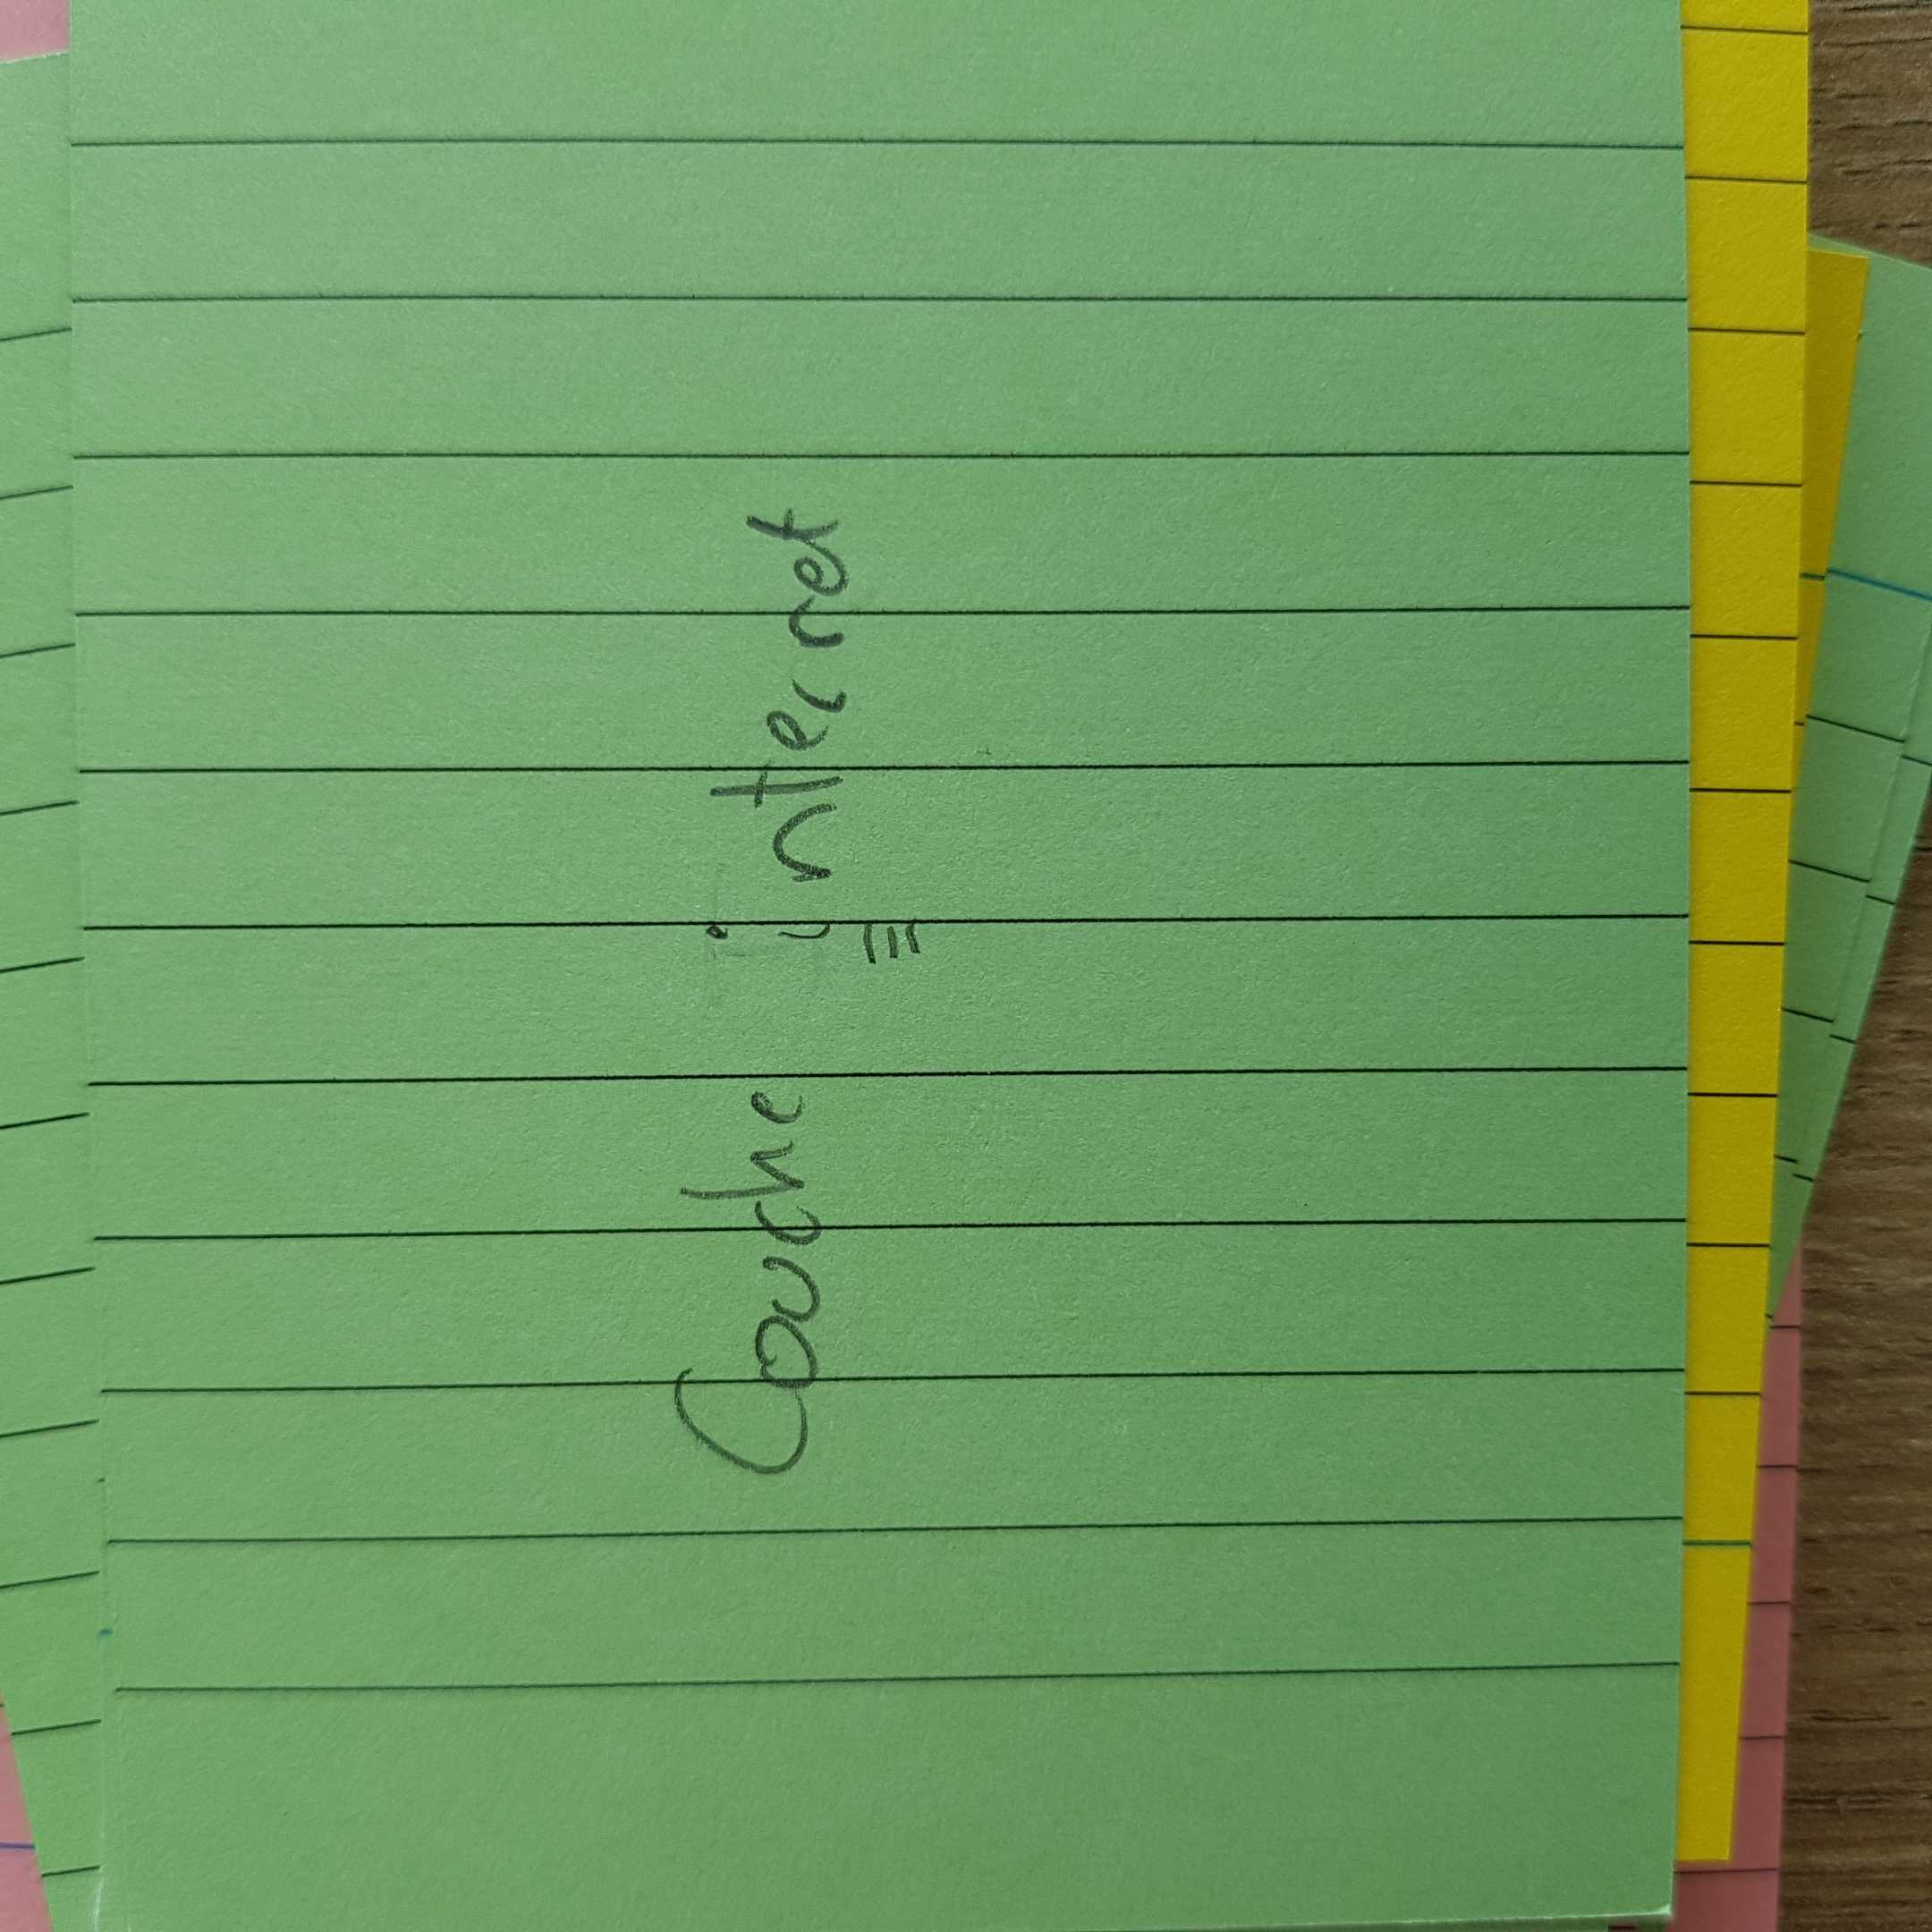 Couche internet